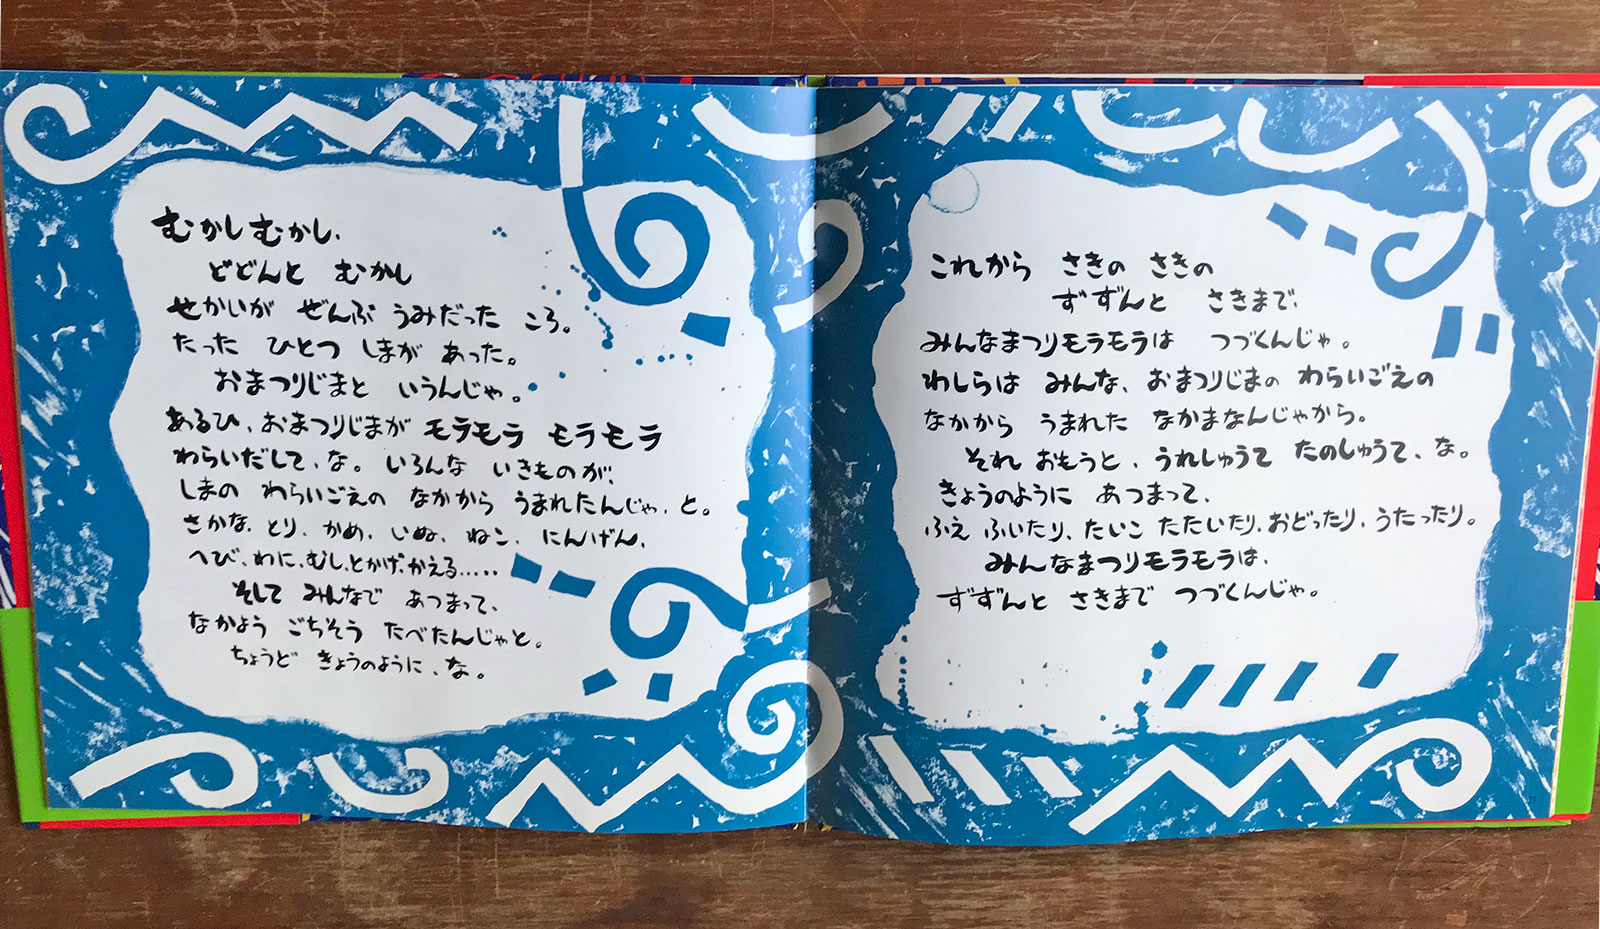 むかしむかし、
どどんと むかし
せかいが ぜんぶ うみだった ころ。
たった ひとつ しまが あった。
おまつりじまと いうんじゃ。
あるひ、おまつりじまが モラモラ モラモラ
わらいだして、な。いろんな いきものが、
しまの わらいごえの なかから うまれたんじゃ、と。
さかな、とり、かめ、いぬ、ねこ、にんげん、
へび、わに、むし、とかげ、かえる.....
そして みんなで あつまって、
なかよう ごちそう たべたんじゃと。
ちょうど きょうのように、な。
これから さきの さきの
ずずんと さきまで、
みんなまつりモラモラは つづくんじゃ。
わしらは みんな、おまつりじまの わらいごえの
なかから うまれた なかまなんじゃから。
それ おもうと、うれしゅうて たのしゅうて、な。
きょうのように あつまって、
ふえ ふいたり、たいこ たたいたり、おどったり、うたったり。
みんなまつりモラモラは、
ずずんと さきまで つづくんじゃ。